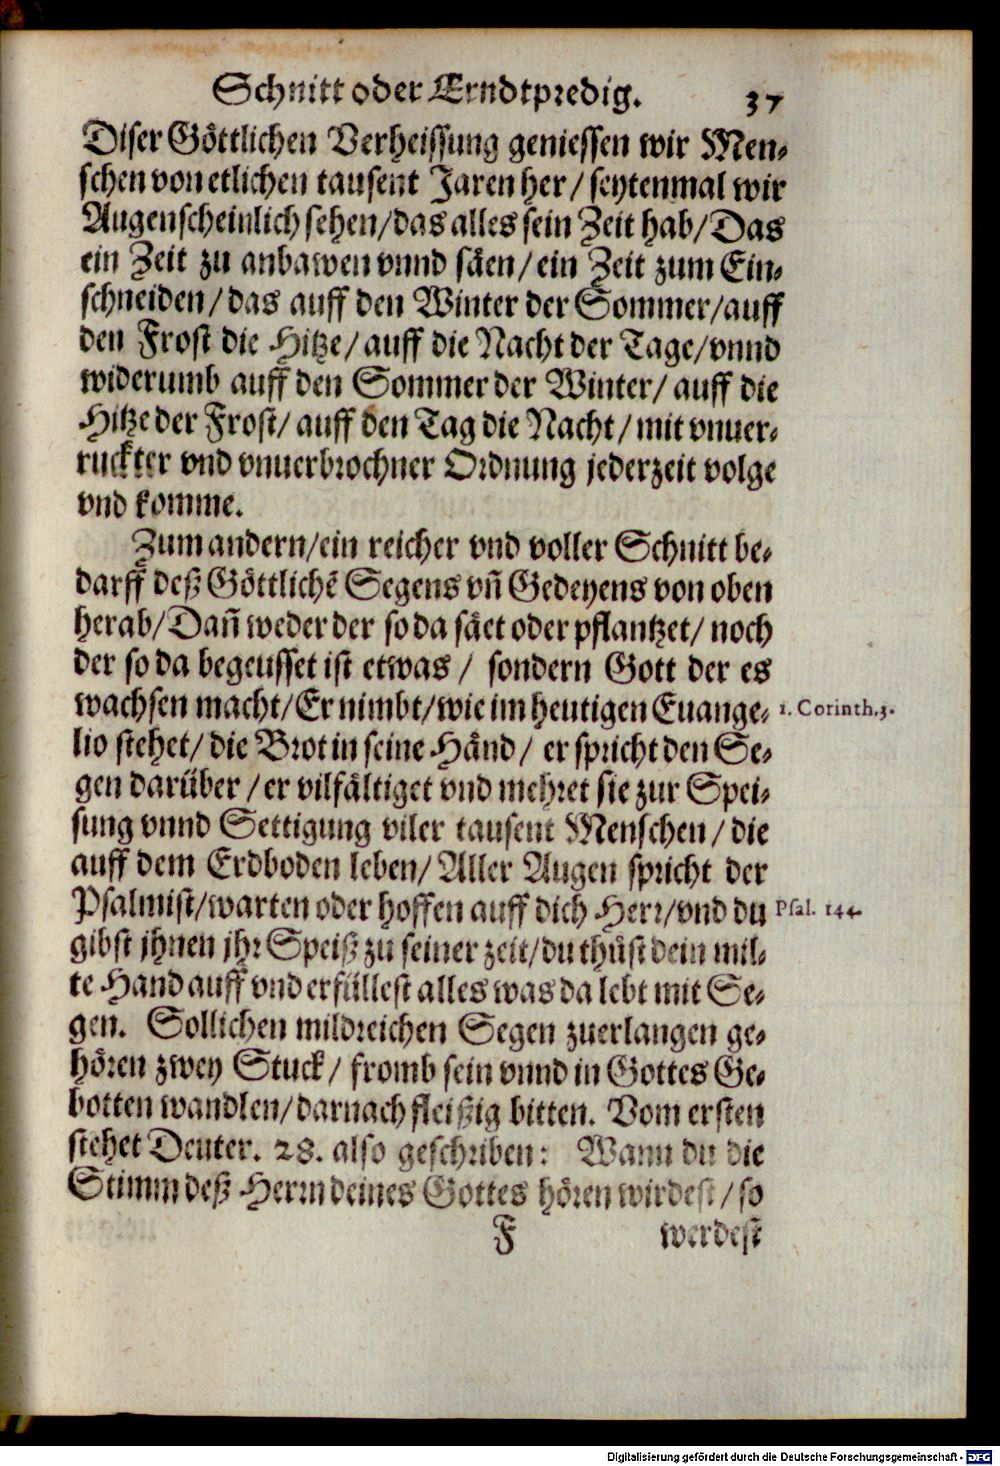 Schnitt oder Erndtpredig. 37
Diser Göttlichen Verheissung geniessen wir Men-
schen von etlichen tausent Jaren her/ seytenmal wir
Augenscheinlich sehen/das alles sein Zeit hab/Das
ein Zeit zu anbawen vnnd säen/ein Zeit zum Ein-
schneiden/das auff den Winter der Sommer/auff
den Frost die Hitze/auff die Nacht der Tage/vnnd
widerumb auff den Sommer der Winter/ auff die
Hitze der Frost/ auff den Tag die Nacht/ mit vnuer-
ruckter vnd vnuerbrochner Ordnung jederzeit volge
vnd komme.
Zum andern/ein reicher vnd voller Schnitt be-
darff deß Göttlichẽ Segens vñ Gedeyens von oben
herab/Dañ weder der so da säet oder pflantzet/ noch
der so da begeusset ist etwas / sondern Gott der es
wachsen macht/Er nimbt/wie im heutigen Euange- 1. Corinth.3.
lio stehet/die Brot in seine Händ/ er spricht den Se-
gen darüber/er vilfältiget vnd mehret sie zur Spei-
sung vnnd Settigung viler tausent Menschen/die
auff dem Erdboden leben/Aller Augen spricht der
Psalmist/warten oder hoffen auff dich Herr/vnd du Psal. 144.
gibst jhnen jhr Speiß zu seiner zeit/du thůst dein mil-
te Hand auff vnd erfüllest alles was da lebt mit Se-
gen. Sollichen mildreichen Segen zuerlangen ge-
hören zwey Stuck/ fromb sein vnnd in Gottes Ge-
botten wandlen/darnach fleißig bitten. Vom ersten
stehet Deuter. 28. also geschriben: Wann du die
Stimm deß Herrn deines Gottes hören wirdest/so
F werdest
Digitalisierung gefördert durch die Deutsche Forschungsgemeinschaft - DFG